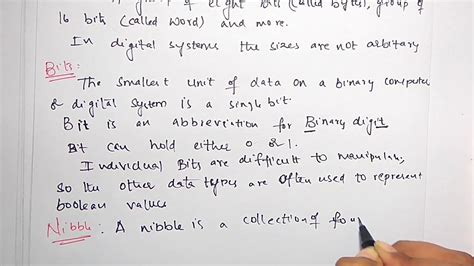 group of eight bits (called bytes), group of
16 bits (called word) and more.
In digital systems the sizes are not arbitary
Bits:
The smallest unit of data on a binary computer
& digital system is a single bit.
Bit is an abbreviation for Binary digit
Bit can hold either 0 or 1.
Individual Bits are difficult to manipulate,
So the other data types are often used to represent
boolean values
Nibble: A nibble is a collection of fou